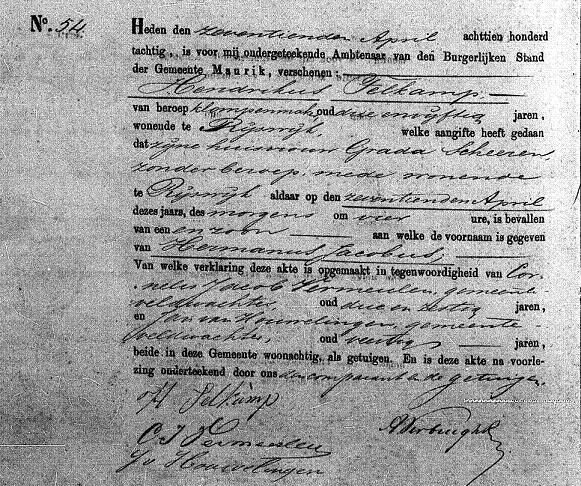 No. 54.
Heden den zeventienden April achttien honderd
tachtig, is voor mij ondergeteekende Ambtenaar van den Burgerlijken Stand
der Gemeente Maurik, verschenen:
Hendrikus Pelkamp.
van beroep klompenmaker oud drie en vijftig jaren,
wonende te Rijswijk, welke aangifte heeft gedaan
dat zijne huisvrouw Grada Scheeren,
zonder beroep, mede wonende
te Rijswijk aldaar op den zeventienden April
dezes jaars, des morgens om vier ure, is bevallen
van een en zoon aan welke de voornaam is gegeven
van Hermanus Jacobus,
Van welke verklaring deze akte is opgemaakt in tegenwoordigheid van Cor-
nelis Jacob Vermeulen, gemeente
veldwachter, oud drie en zestig jaren,
en Jan van Houwelingen, gemeente-
veldwachter, oud veertig jaren,
beide in deze Gemeente woonachtig, als getuigen. En is deze akte na voorle-
zing onderteekend door ons den comparant en de getuigen.
H Pelkamp
C J Vermeulen
J v Houwelingen